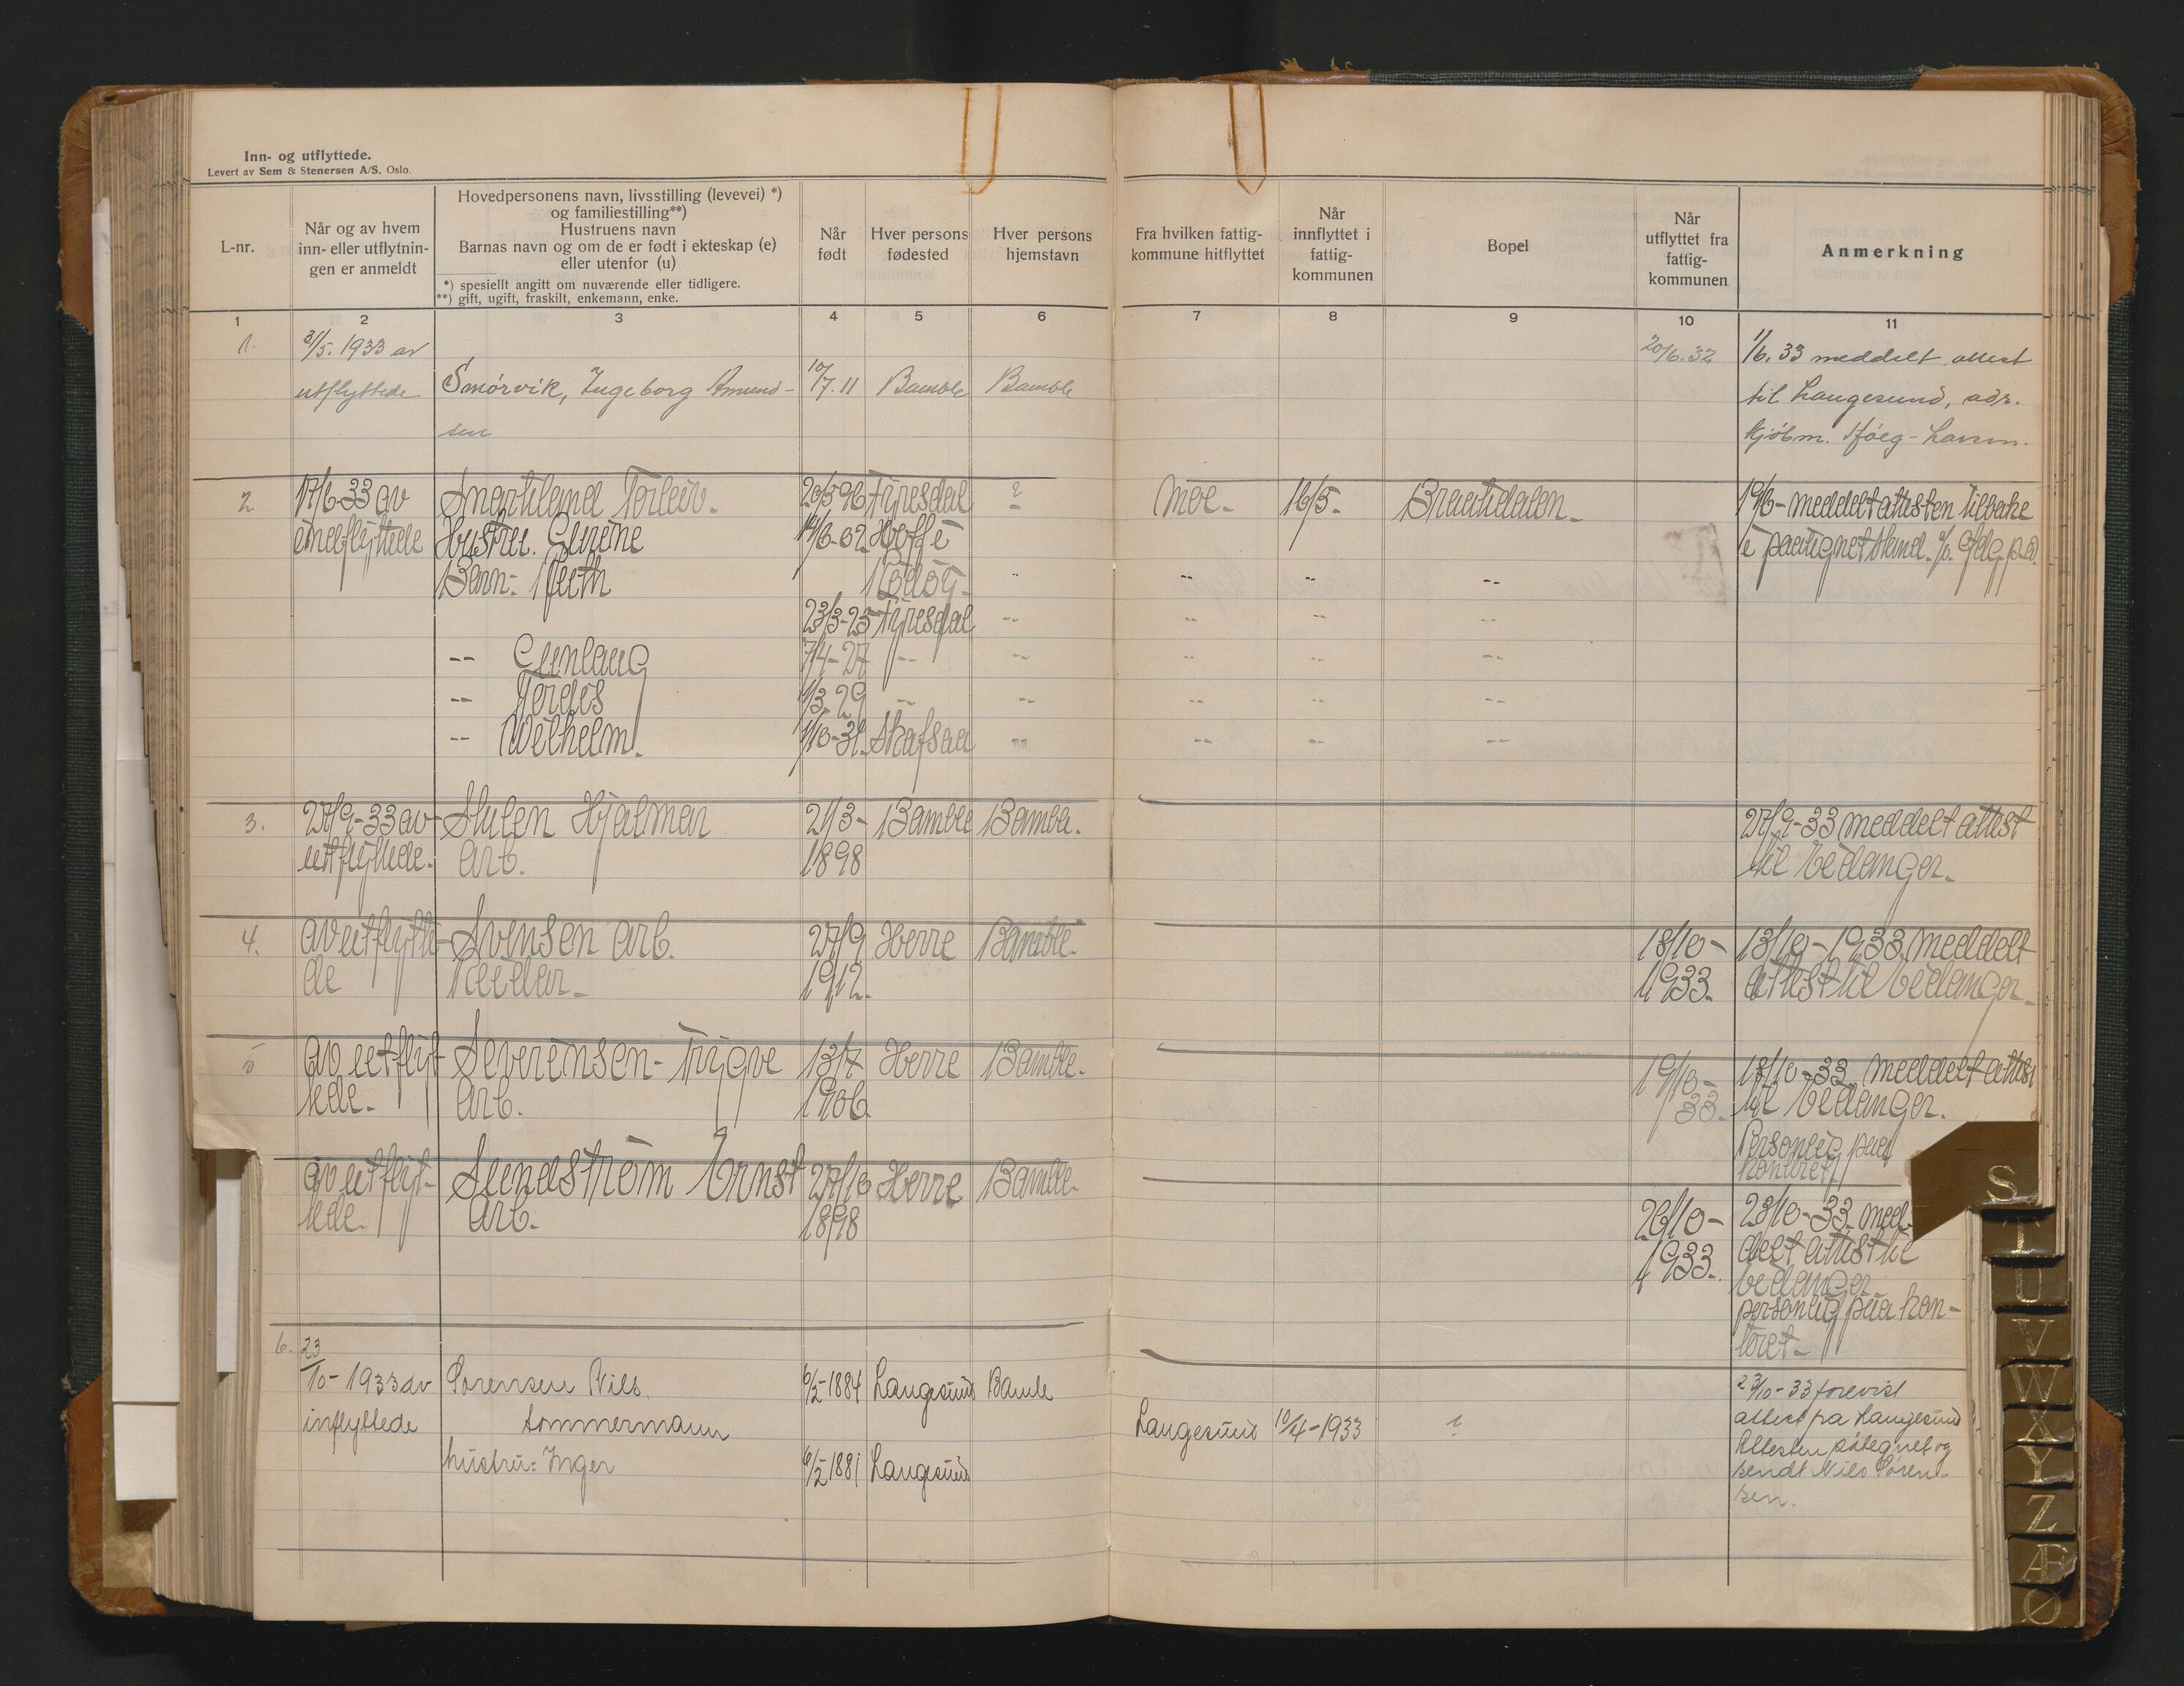 Inn- og utflyttede.
Levert av Sem & Stenersen A/S, Oslo.
L-nr.
Når og av hvem
inn- eller utflytnin-
gen er anmeldt
Hovedpersonens navn, livsstilling (levevei) *)
og familiestilling**)
Hustruens navn
Barnas navn og om de er født i ekteskap (e)
eller utenfor (u)
*) spesiellt angitt om nuværende eller tidligere.
**) gift, ugift, fraskilt, enkemann, enke.
Når
født
Hver persons
fødested
Hver persons
hjemstavn
Fra hvilken fattig-
kommune hitflyttet
Når
innflyttet i
fattig-
kommunen
Bopel
Når
utflyttet fra
fattig-
kommunen
Anmerkning
1 2 3 4 5 6 7 8 9 10 11
1. 31/5. 1933 av 20/6. 32 1/6. 33 meddelt attest
utflyttede Smørvik, Ingeborg Amund- 10/7. 11 Bamble Bamble til Langesund, adr.
sen kjøbm.
2 17/6-33 av Torleiv. 20/5 96 Fyresdal ? Moe. 16/5. 19/6- meddelt attesten tilbake
indflyttede Hustru. 14/6-02. i stand.
Barn: Ruth " -- -- --
23/3-25 Fyresdal -- -- -- --
-- Gunlaug 7/4-27 -- -- -- -- --
-- Tordis 1/3. 29 -- -- -- -- --
-- Wilhelm. 1/10-31. Skafsaa " -- -- --
3. 27/9-33 av Stulen Hjalmar 21/3- Bamble Bamble. 27/9-33 meddelt attest
utflyttede. Arb. 1898 til Eidanger.
4. av utflytte- Svensen arb. 27/9 Herre Bamble. 18/10- 13/10-1933 meddelt
de Reidar. 1912. 1933. attest til Eidanger.
5 av utflyt- Severinsen- Trygve 13/7 Herre Bamble. 19/10- 18/10-33 meddelt attest
tede. Arb. 1906. 33. til Eidanger.
Personlig paa
kontoret
av utflyt- Sundstrøm Ernst 27/10 Herre Bamble.
tede. Arb. 1898 26/10- 23/10-33 med-
1933. delt attest til
Eidanger
personlig paa kon-
toret.
6. 23
/10-1933 av Sørensen Nils. 6/2-1884 Langesund Bamle 23/10-33 forevist
inflyttede tømmermann Langesund 10/4-1933 ? attest fra Langesund
hustru: Inger 6/2 1881 Langesund Attesten påtegnet og
sendt Nils Søren-
sen.
S
T
U
V
W
X
Y
Z
Æ
Ø